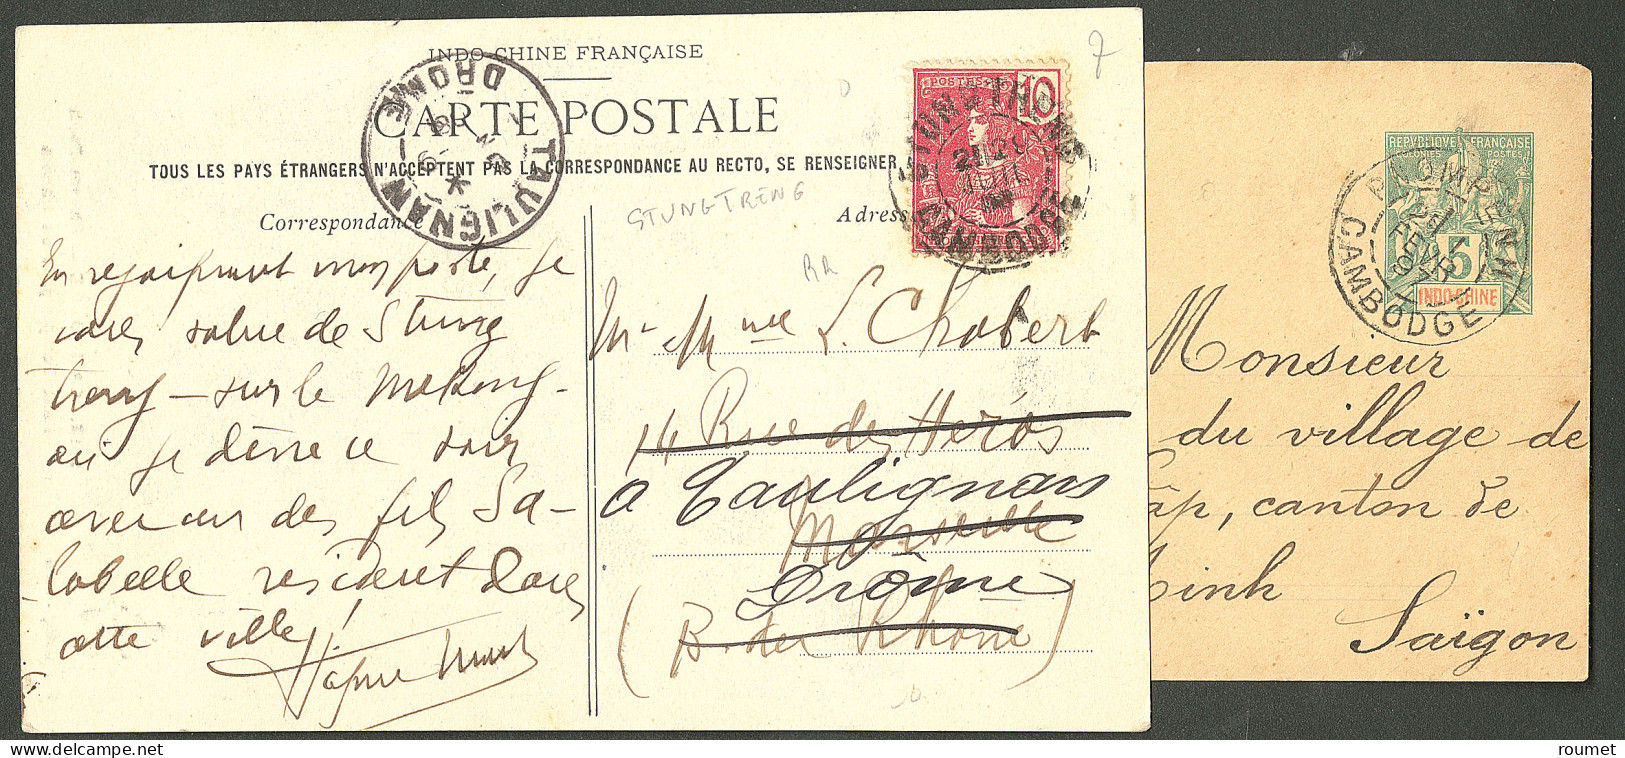 INDO-CHINE FRANÇAISE
CARTE POSTALE
TOUS LES PAYS ÉTRANGERS N'ACCEPTENT PAS LA CORRESPONDANCE AU RECTO, SE RENSEIGNER
Correspondance
Adresse
TAULIGNAN
DROME
STUNG-TRENG
RR
7
POSTES
10
STUNG-TRENG
CAMBODGE
En rejoignant mon poste, je
vous salue de Stung
treng - sur le Mékong -
où je dîne ce soir
avec un des fils Sa-
labelle résident dans
cette ville!
Mr Mme L. Chabert
14 Rue des Héros
à Taulignan
Marseille
Drôme
(B. du Rhône)
REPUBLIQUE FRANÇAISE
COLONIES POSTES
5
INDO-CHINE
PNOMPENH
21
FEVR
97
CAMBODGE
Monsieur
du village de
âp, canton de
inh
Saïgon
roumet